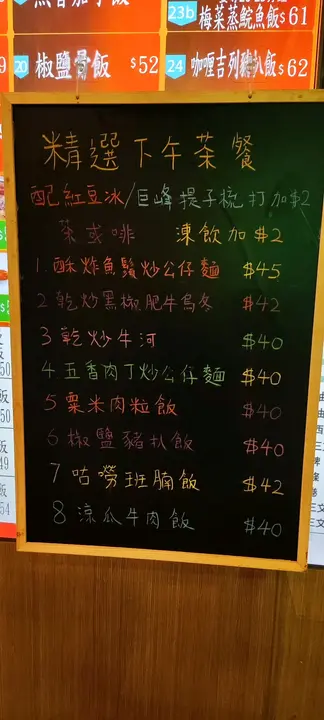 23b 梅菜蒸鯇魚飯$61
20 椒鹽骨飯 $52
24 咖喱吉列豬扒飯$62
精選下午茶餐
配紅豆冰/巨峰提子梳打加$2
茶或啡 凍飲加$2
1. 酥炸魚鬚炒公仔麵 $45
2 乾炒黑椒肥牛烏冬 $42
3 乾炒牛河 $40
4 五香肉丁炒公仔麵 $40
5 粟米肉粒飯 $40
6 椒鹽豬扒飯 $40
7 咕嘮班腩飯 $42
8 涼瓜牛肉飯 $40